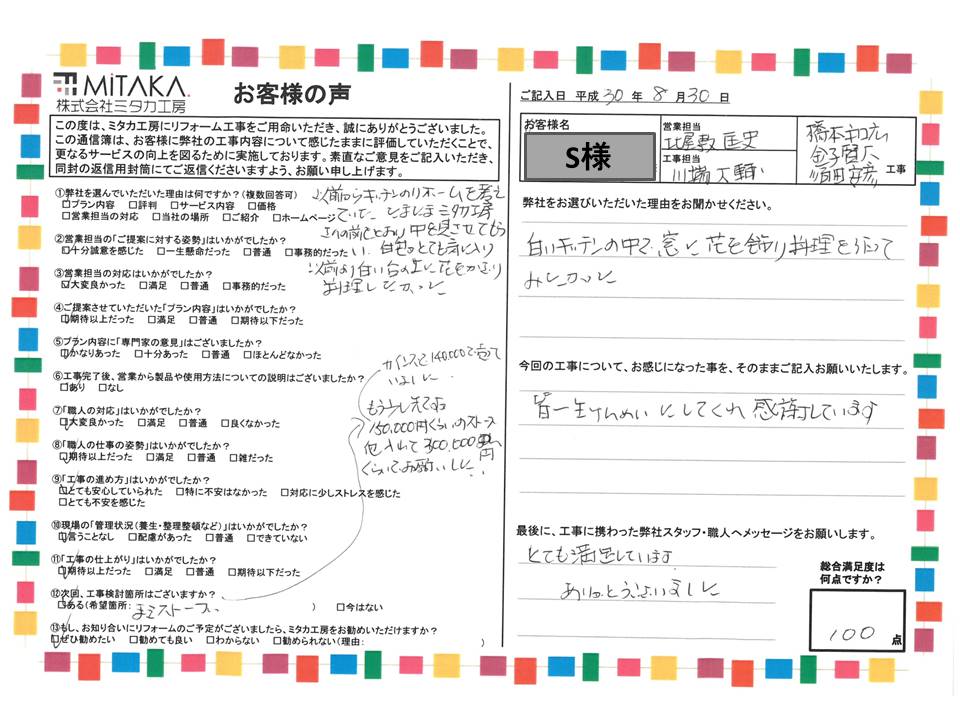 MiTAKA.
株式会社ミタカ工房
お客様の声
この度は、ミタカ工房にリフォーム工事をご用命いただき、誠にありがとうございました。
この通信簿は、お客様に弊社の工事内容について感じたままに評価していただくことで、
更なるサービスの向上を図るために実施しております。素直なご意見をご記入いただき、
同封の返信用封筒にてご返信くださいますよう、お願い申し上げます。
①弊社を選んでいただいた理由は何ですか?(複数回答可)
□プラン内容 □評判 □サービス内容 □価格
□営業担当の対応 □当社の場所 □ご紹介 □ホームページ
以前からキッチンのリホームを考え
ていた
ミタカ工房
さんの前をとおり 中を見させてもら
い 白色がとても気に入り
以前より白い台の上に花をかざり
料理したかった
②営業担当の「ご提案に対する姿勢」はいかがでしたか?
□十分誠意を感じた □一生懸命だった □普通 □事務的だった
③営業担当の対応はいかがでしたか?
□大変良かった □満足 □普通 □事務的だった
④ご提案させていただいた「プラン内容」はいかがでしたか?
□期待以上だった □満足 □普通 □期待以下だった
⑤プラン内容に「専門家の意見」はございましたか?
□かなりあった □十分あった □普通 □ほとんどなかった
⑥工事完了後、営業から製品や使用方法についての説明はございましたか?
□あり □なし
⑦「職人の対応」はいかがでしたか?
□大変良かった □満足 □普通 □良くなかった
⑧「職人の仕事の姿勢」はいかがでしたか?
□期待以上だった □満足 □普通 □雑だった
⑨「工事の進め方」はいかがでしたか?
□とても安心していられた □特に不安はなかった □対応に少しストレスを感じた
□とても不安を感じた
⑩現場の「管理状況(養生・整理整頓など)」はいかがでしたか?
□言うことなし □配慮があった □普通 □できていない
⑪「工事の仕上がり」はいかがでしたか?
□期待以上だった □満足 □普通 □期待以下だった
⑫次回、工事検討箇所はございますか?
□ある(希望箇所: まきストーブ ) □今はない
⑬もし、お知り合いにリフォームのご予定がございましたら、ミタカ工房をお勧めいただけますか?
□ぜひ勧めたい □勧めても良い □わからない □勧められない(理由: )
カインズで140,000で売て
いました.
もう少し先ですね
150,000円くらいのストーブ
包入れて300,000円
くらいでお願いします
ご記入日 平成 30 年 8 月 30 日
お客様名
S様
営業担当
北屋敷 匡史
工事担当
川端 大輔
工事
弊社をお選びいただいた理由をお聞かせください。
白いキッチンの中で、窓に花を飾り料理を作って
みたかった
今回の工事について、お感じになった事を、そのままご記入お願いいたします。
皆一生けんめいにしてくれ 感謝しています
最後に、工事に携わった弊社スタッフ・職人へメッセージをお願いします。
とても満足しています
ありがとうございました
総合満足度は
何点ですか?
100 点